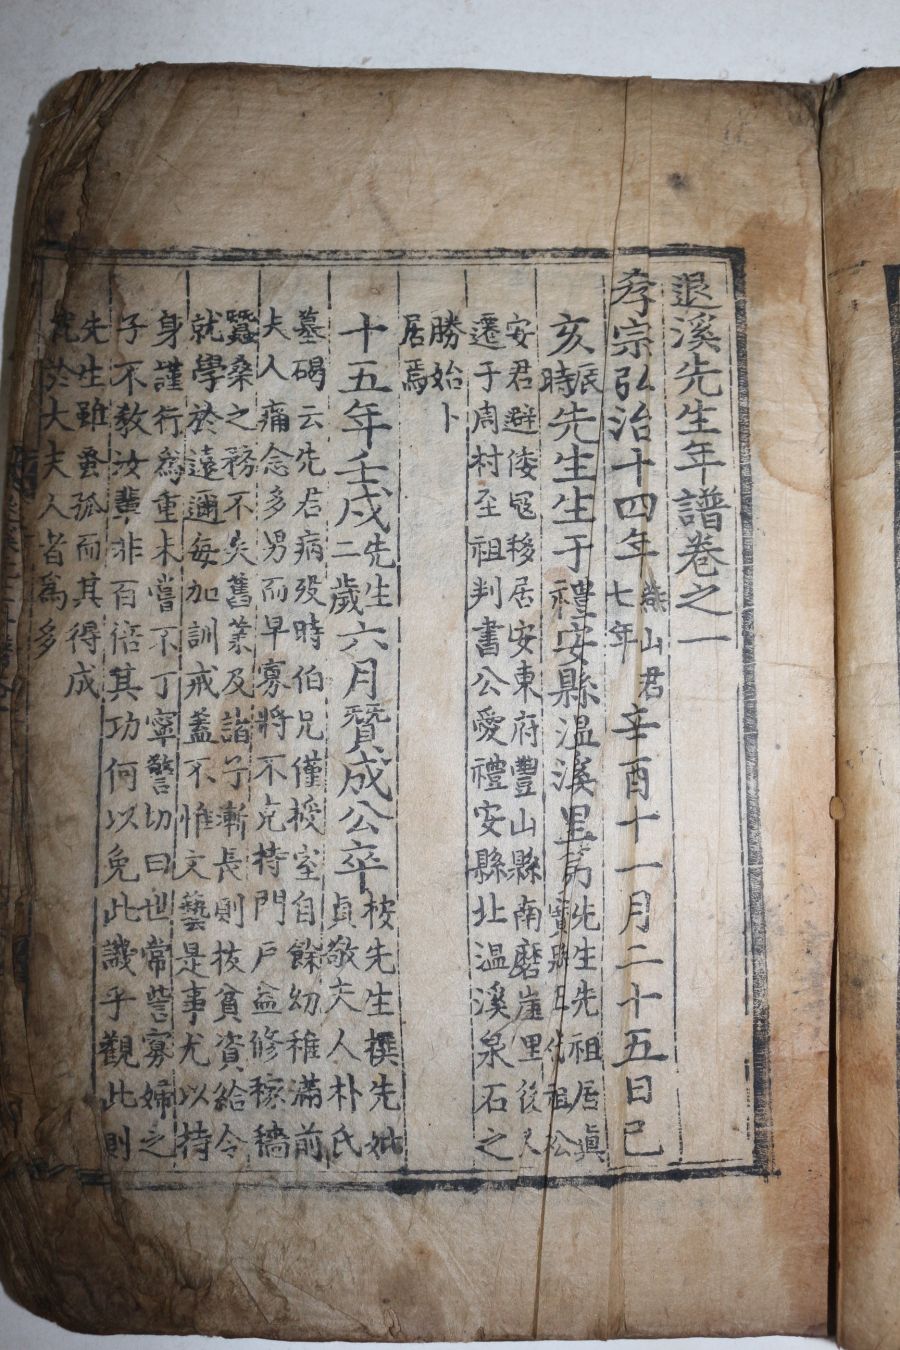 退溪先生年譜卷之一
孝宗弘治十四年燕山君七年辛酉十一月二十五日己
亥辰時先生生于禮安縣溫溪里第先生先祖居眞寶縣五代祖松
安君避倭寇移居安東府豐山縣南磨崖里後又
遷于周村至祖判書公愛禮安縣北溫溪泉石之
勝始卜
居焉
十五年壬戌先生二歲六月贊成公卒按先生撰先妣貞敬夫人朴氏
墓碣云先君病歿時伯兄僅授室自餘幼稚滿前
夫人痛念多男而早寡將不克持門戶益修稼穡
蠶桑之務不失舊業及諸子漸長則拔貧資給令
就學於遠邇每加訓戒蓋不惟文藝是事尤以持
身謹行爲重未嘗不丁寧警切曰世常訾寡婦之
子不敎汝輩非百倍其功何以免此譏乎觀此則
先生雖蚤孤而其得成
就於大夫人者爲多